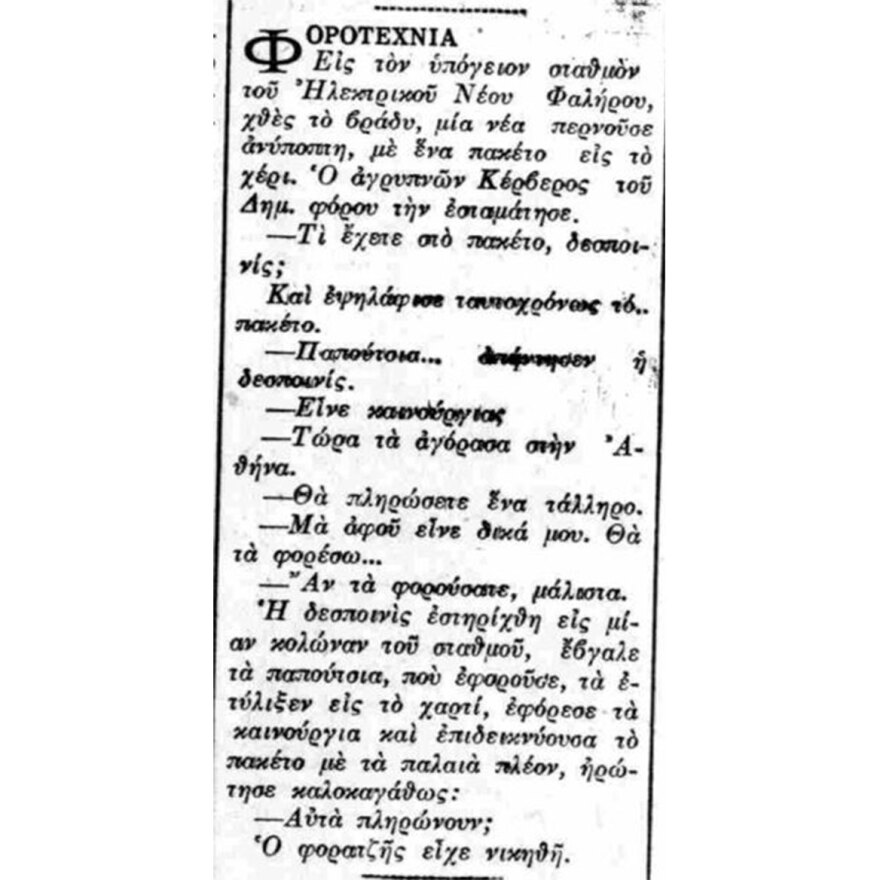 ΦΟΡΟΤΕΧΝΙΑ
Εἰς τὸν ὑπόγειον σταθμὸν
τοῦ Ἠλεκτρικοῦ Νέου Φαλήρου,
χθὲς τὸ βράδυ, μία νέα περνοῦσε
ἀνύποπτη, μὲ ἕνα πακέτο εἰς τὸ
χέρι. Ὁ ἀγρυπνῶν Κέρβερος τοῦ
Δημ. φόρου τὴν ἐσταμάτησε.
—Τὶ ἔχετε στὸ πακέτο, δεσποι-
νίς;
Καὶ ἐψηλάφισε ταυτοχρόνως τὸ..
πακέτο.
—Παπούτσια... ἀπήντησεν ἡ
δεσποινίς.
—Εἶνε καινούργιας
—Τώρα τὰ ἀγόρασα στὴν Ἀ-
θήνα.
—Θὰ πληρώσετε ἕνα τάλληρο.
—Μὰ ἀφοῦ εἶνε δικά μου. Θὰ
τὰ φορέσω...
—Ἂν τὰ φορούσατε, μάλιστα.
Ἡ δεσποινὶς ἐστηρίχθη εἰς μί-
αν κολώναν τοῦ σταθμοῦ, ἔβγαλε
τὰ παπούτσια, ποὺ ἐφοροῦσε, τὰ ἐ-
τύλιξεν εἰς τὸ χαρτί, ἐφόρεσε τὰ
καινούργια καὶ ἐπιδεικνύουσα τὸ
πακέτο μὲ τὰ παλαιὰ πλέον, ἠρώ-
τησε καλοκαγάθως:
—Αὐτὰ πληρώνουν;
Ὁ φορατζῆς εἶχε νικηθῆ.